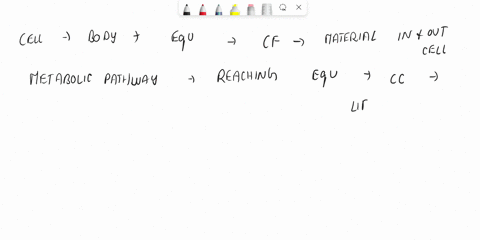 CELL → BODY + EQU → CF → MATERIAL IN + OUT
CELL
METABOLIC PATHWAY → REACHING EQU → CC →
LIF